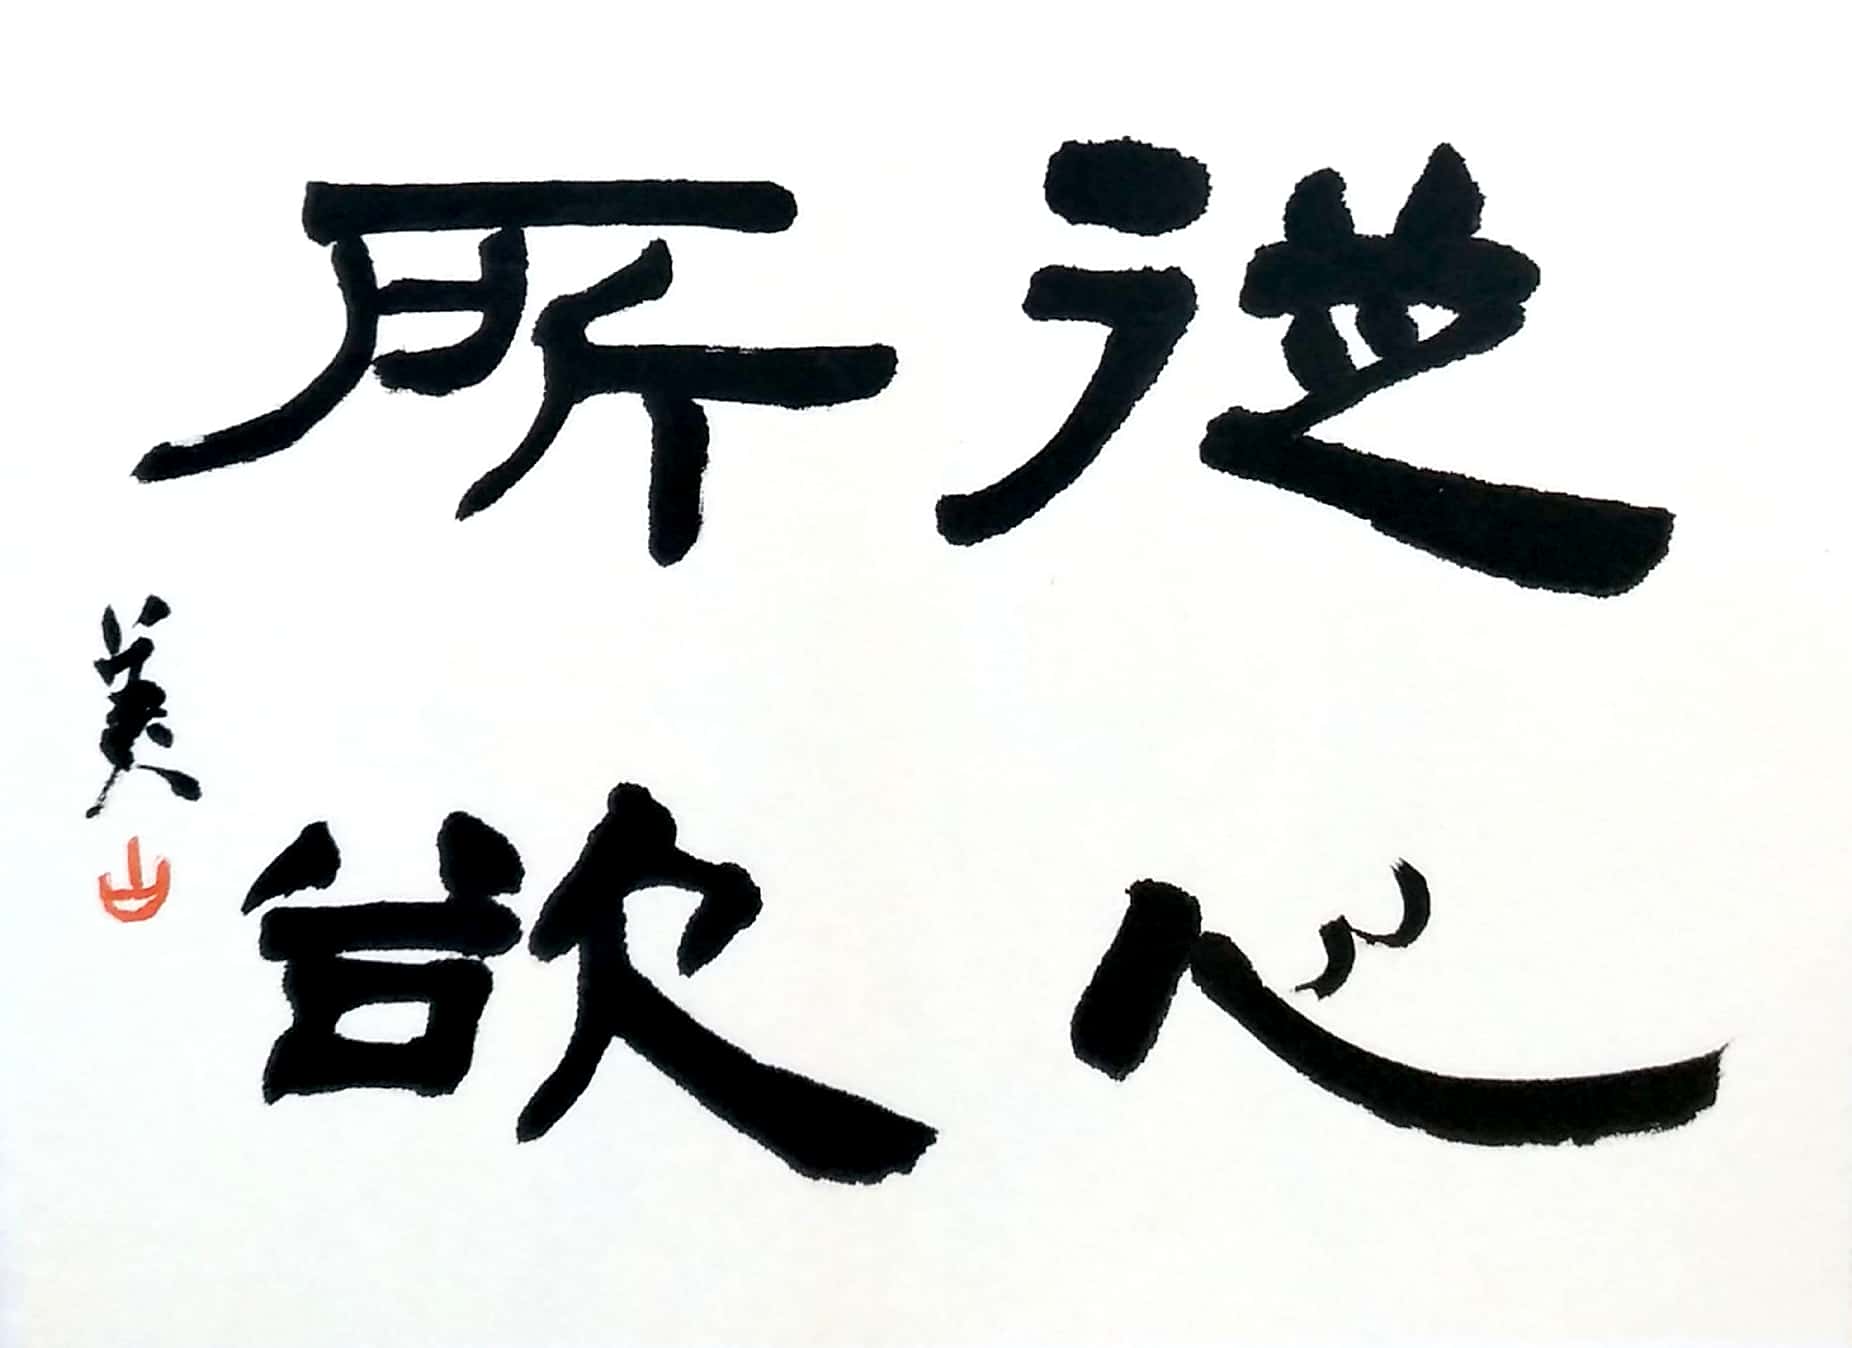 從心
所欲
美
山